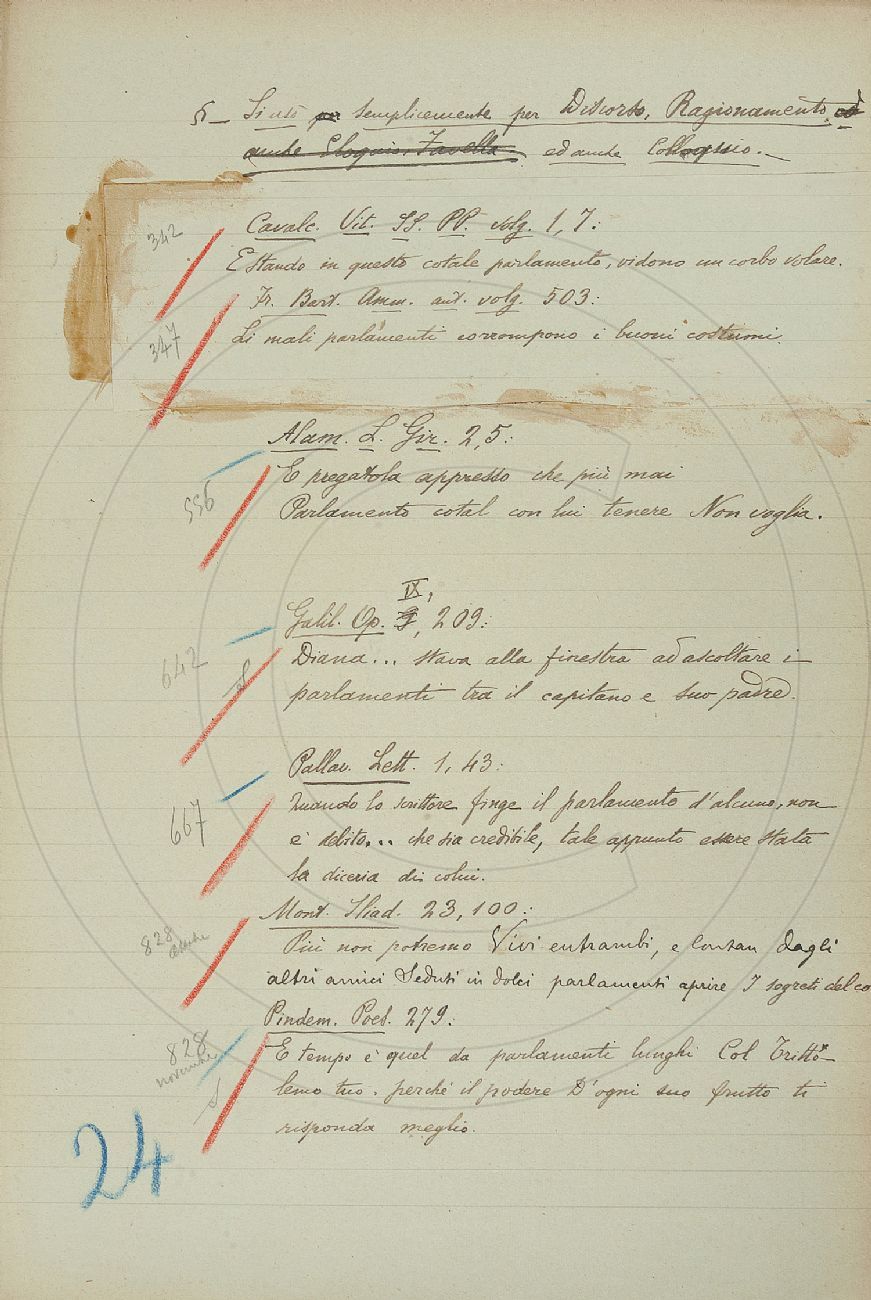 § — Si usò per semplicemente per Discorso, Ragionamento, ed
anche Eloquio, Favella. ed anche Colloquio. —
342
Cavalc. Vit. SS. PP. volg. 1, 7:
Estando in questo cotale parlamento, vidono un corbo volare.
Fr. Bart. Amm. ant. volg. 503:
347
Li mali parlamenti corrompono i buoni costumi.
Alam. L. Gir. 2,5:
556
E pregatola appresso che più mai
Parlamento cotal con lui tenere Non voglia.
IX,
Galil. Op. 209:
642
Diana... stava alla finestra ad ascoltare i
parlamenti tra il capitano e suo padre.
Pallav. Lett. 1, 43:
667
Quando lo scrittore finge il parlamento d'alcuno, non
è debito... che sia credibile, tale appunto essere stata
la diceria di colui.
Mont. Iliad. 23, 100:
828
Più non potremo Vivi entrambi, e lontan dagli
altri amici Seduti in dolci parlamenti aprire I segreti del co
Pindem. Poes. 279:
828
novembre
E tempo è quel da parlamenti lunghi Col Tritto-
lemo tuo, perché il podere D'ogni suo frutto ti
risponda meglio.
24